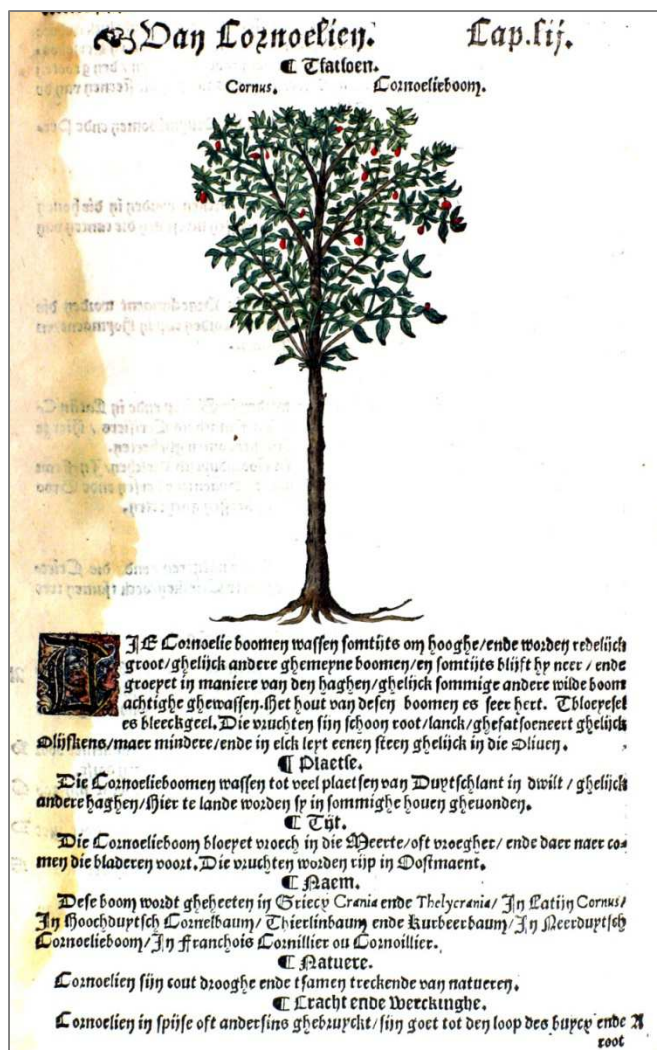 Van Cornoelien. Cap.lij.
¶ Tfatsoen.
Cornus. Cornoelieboom.
DIE Cornoelie boomen wassen somtijts om hooghe/ende worden redelijck
groot/ghelijck andere ghemeyne boomen/en somtijts blijft hy neer / ende
groeyet in maniere van den haghen/ghelijck sommige andere wilde boom
achtighe ghewassen. Het hout van desen boomen es seer hert. Tbloeysel
es bleeckgeel. Die vruchten sijn schoon root/lanck/ghefatsoeneert ghelijck
Olijfkens/maer mindere/ende in elck leyt eenen steen ghelijck in die Oliven.
¶ Plaetse.
Die Cornoelieboomen wassen tot veel plaetsen van Duytschlant in dwilt / ghelijck
andere haghen/Hier te lande worden sy in sommighe houen gheuonden.
¶ Tijt.
Die Cornoelieboom bloeyet vroech in die Meerte/oft vroegher/ ende daer naer co-
men die bladeren voort. Die vruchten worden rijp in Oostmaent.
¶ Naem.
Dese boom wordt gheheeten in Griecx Crania ende Thelycrania/ In Latijn Cornus/
In Hoochduytsch Cornelbaum/ Thierlinbaum ende Kurbeerbaum/ In Neerduytsch
Cornoelieboom/ In Franchois Cornillier ou Cornoillier.
¶ Natuere.
Cornoelien sijn cout drooghe ende tsamen treckende van natueren.
¶ Cracht ende Werckinghe.
Cornoelien in spijse oft andersins ghebruyckt/ sijn goet tot den loop des buycx ende A
root